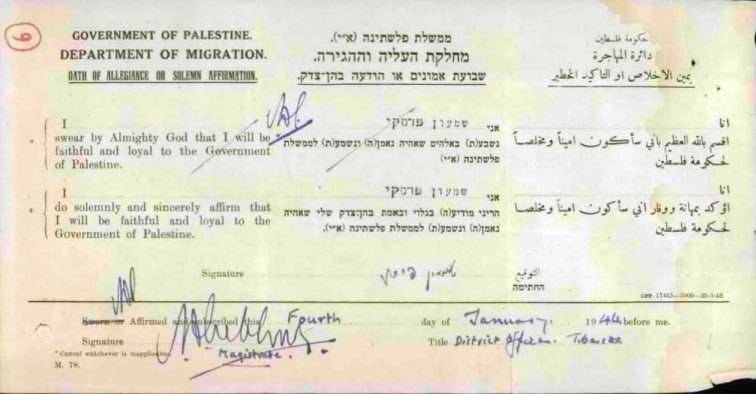 6
GOVERNMENT OF PALESTINE.
DEPARTMENT OF MIGRATION.
OATH OF ALLEGIANCE OR SOLEMN AFFIRMATION.
ממשלת פלשתינה (א״י).
מחלקת העליה וההגירה.
שבועת אמונים או הודעה בהן־צדק.
حكومة فلسطين
دائرة المهاجرة
يمين الاخلاص او التاكيد الخطير
I
swear by Almighty God that I will be
faithful and loyal to the Government
of Palestine.
אני שמעון פרסקי
נשבע(ת) באלהים שאהיה נאמן(ה) ונשמע(ת) לממשלת
פלשתינה (א״י)
انا
اقسم بالله العظيم باني سأكون اميناً ومخلصاً
لحكومة فلسطين
I
do solemnly and sincerely affirm that
I will be faithful and loyal to the
Government of Palestine.
אני שמעון פרסקי
הריני מודיע(ה) בגלוי ובאמת בהן־צדק שלי שאהיה
נאמן(ה) ונשמע(ת) לממשלת פלשתינה (א״י)
انا
اؤكد بمهانة ووقار اني سأكون اميناً ومخلصا
لحكومة فلسطين
Signature
שמעון פרסקי
التوقيع
החתימה
GPP. 17445—5000—20-9-43
Sworn or Affirmed and subscribed this Fourth day of January. 1944 before me.
Signature
Magistrate.
Title District Officer. Tiberias
* Cancel whichever is inapplicable.
M. 78.